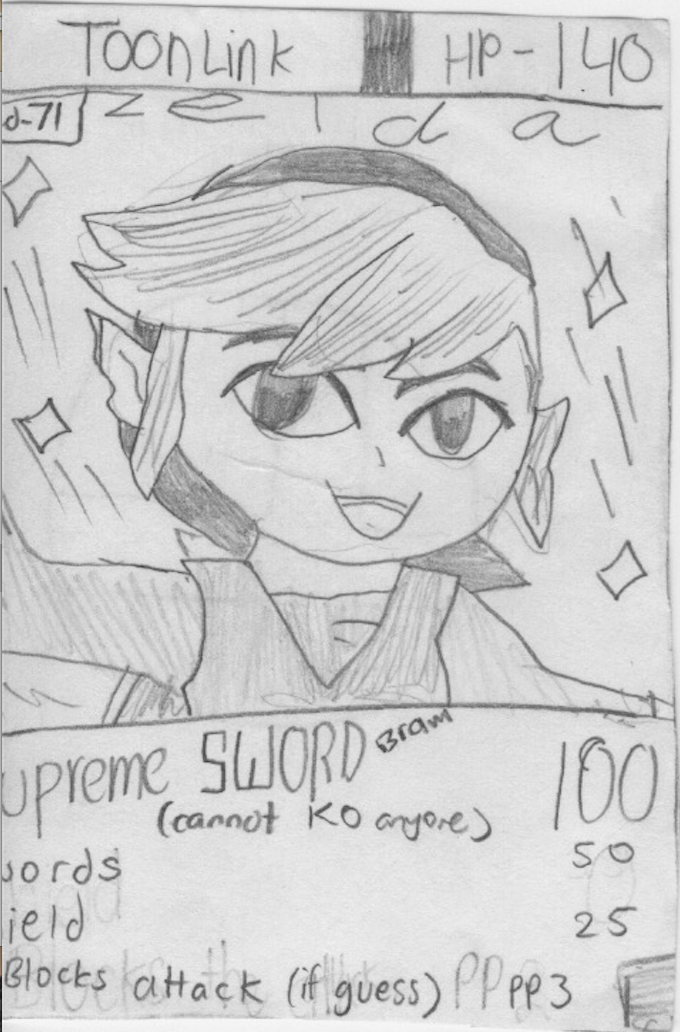 Toon Link HP-140
d-71 zelda
upreme SWORD Bram 100
(cannot KO anyone)
words 50
ield 25
Blocks attack (if guess) PP PP3